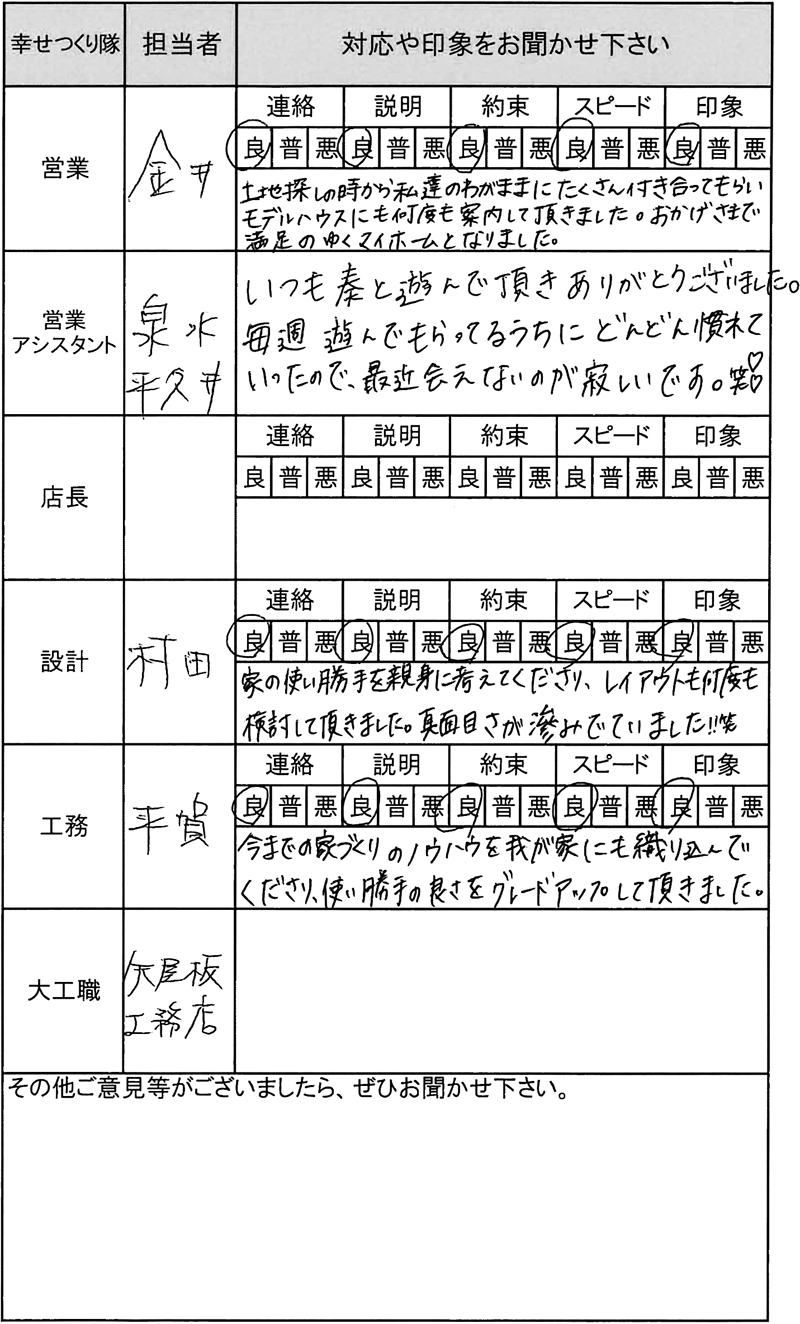 幸せつくり隊 担当者 対応や印象をお聞かせ下さい
営業 金井
連絡 説明 約束 スピード 印象
良 普 悪 良 普 悪 良 普 悪 良 普 悪 良 普 悪
土地探しの時から私達のわがままにたくさん付き合ってもらい
モデルハウスにも何度も案内して頂きました。おかげさまで
満足のゆくマイホームとなりました。
営業
アシスタント
泉水
平久井
いつも奏と遊んで頂きありがとうございました。
毎週遊んでもらってるうちにどんどん慣れて
いったので、最近会えないのが寂しいです。笑♡♡
店長
連絡 説明 約束 スピード 印象
良 普 悪 良 普 悪 良 普 悪 良 普 悪 良 普 悪
設計 村田
連絡 説明 約束 スピード 印象
良 普 悪 良 普 悪 良 普 悪 良 普 悪 良 普 悪
家の使い勝手を親身に考えてくださり、レイアウトも何度も
検討して頂きました。真面目さが滲みでていました!!笑
工務 平賀
連絡 説明 約束 スピード 印象
良 普 悪 良 普 悪 良 普 悪 良 普 悪 良 普 悪
今までの家づくりのノウハウを我が家にも織り込んで
くださり、使い勝手の良さをグレードアップして頂きました。
大工職
矢尾板
工務店
その他ご意見等がございましたら、ぜひお聞かせ下さい。